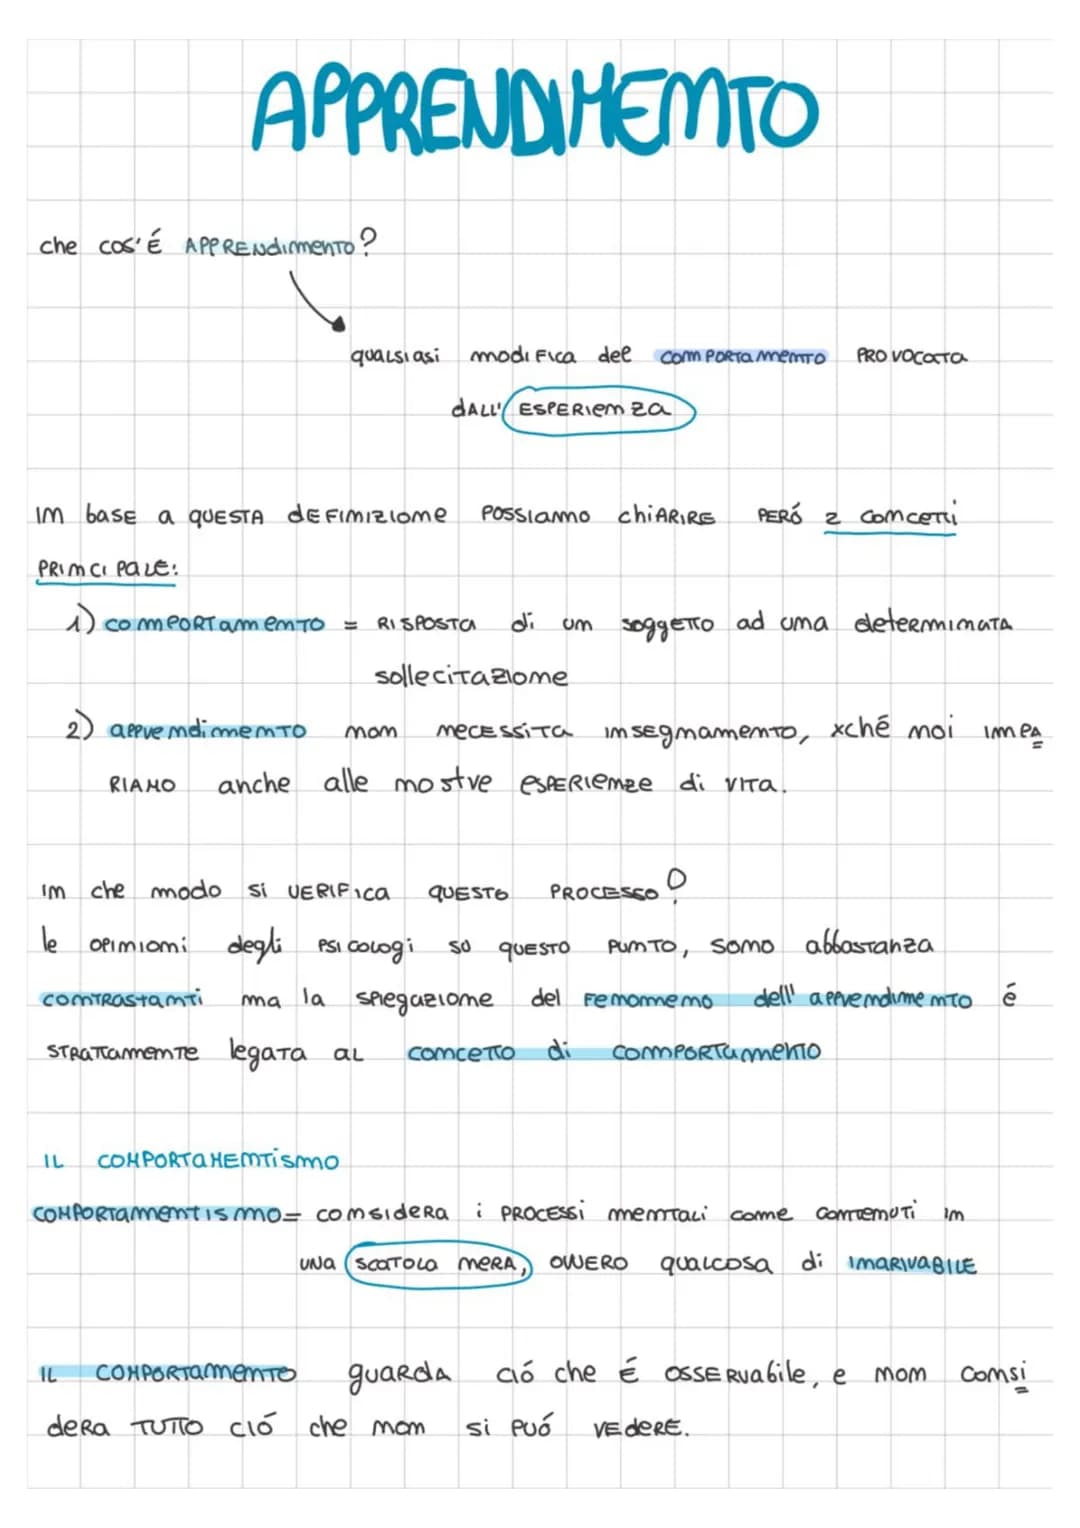 APPRENDIMENTO
che cos'É APPRENdimento?
qualsiasi modifica del comportamento PROVOCATA
dALL' ESPERIENZA
IN base a QUESTA dEFINIZIONE POSSIAMO chiARIRE PERÓ 2 concetti
PRINCIPALE:
1) comportamento = RISPOSTA di un soggetto ad una determinata
sollecitazione
2) apprendimento non necessita insegnamento, xché noi impa
RIAMO anche alle nostre esperienze di VITA.
IN che modo si VERIFica QUESTO PROCESSO?
le opinioni degli psicologi su QUESTO PUNTO, sono abbastanza
contrastanti ma la spiegazione del fenomeno dell' apprendimento é
STRATTAMENTE legata al concetto di comportamento
IL COMPORTAMENTISMO
COMPORTAMENTISMO = considera i PROCESSi mentali come contenuti in
UNA SCATOLA NERA, OVVERO QUALCOSA di INARIVABILE
IL COMPORTAMENTO guarda ció che É OSSERVAbile, e non consi
dERA TUTTO CIÓ che non si PUÓ VEdERE.